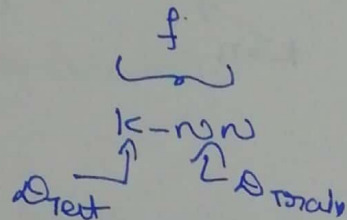 f
K-NN
D_Test D_Train